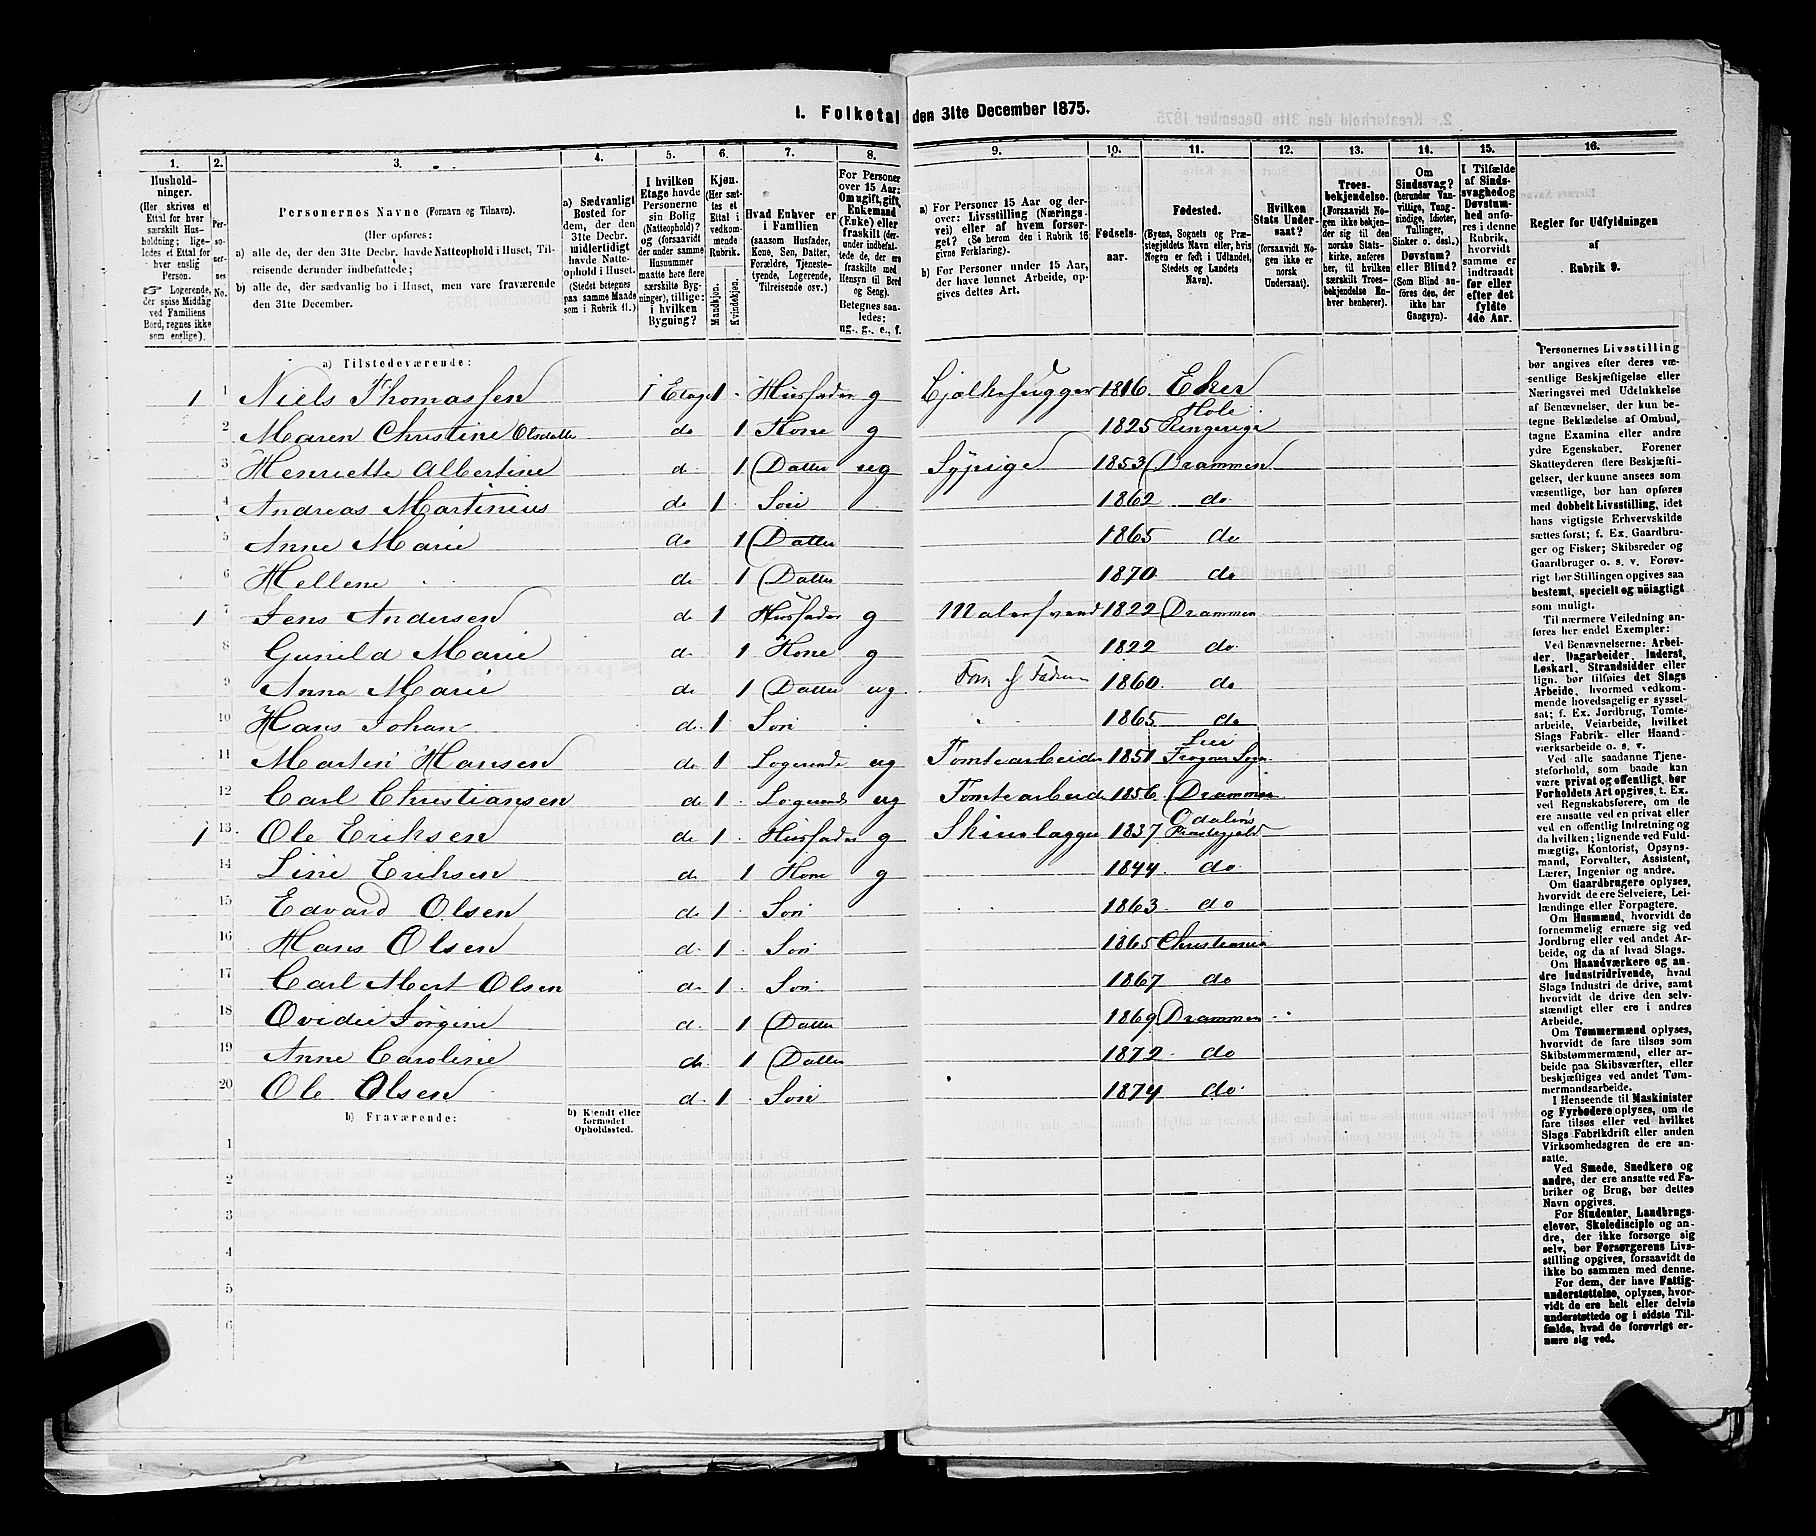 1. Folketal den 31te December 1875.
1. 2. 3. 4. 5. 6. 7. 8. 9. 10. 11. 12. 13. 14. 15. 16.
Husholdninger.
(Her skrives et Ettal for hver særskilt Husholdning; ligeledes et Ettal for hver enslig Person.
☞ Logerende, der spise Middag ved Familiens Bord, regnes ikke som enslige).
Personernes No.
Personernes Navne (Fornavn og Tilnavn).
(Her opføres:
a) alle de, der den 31te Decbr. havde Natteophold i Huset, Tilreisende derunder indbefattede;
b) alle de, der sædvanlig bo i Huset, men vare fraværende den 31te December.
a) Sædvanligt Bosted for dem, der den 31te Decbr. midlertidigt havde Natteophold i Huset. (Stedet betegnes paa samme Maade som i Rubrik 11.)
I hvilken Etage havde Personerne sin Bolig (Natteophold)? og (forsaavidt der under samme Husnummer maatte høre flere særskilte Bygninger), tillige: i hvilken Bygning?
Kjøn.
(Her sættes et Ettal i vedkommende Rubrik.
Mandkjøn. Kvindekjøn.
Hvad Enhver er i Familien
(saasom Husfader, Kone, Søn, Datter, Forældre, Tjenestetyende, Logerende, Tilreisende osv.)
For Personer over 15 Aar: Om ugift, gift, Enkemand (Enke) eller fraskilt (derunder indbefattede de, der ere fraskilte med Hensyn til Bord og Seng).
Betegnes saaledes: ug., g., e., f.
a) For Personer 15 Aar og derover: Livsstilling (Næringsvei) eller af hvem forsørget? (Se herom den i Rubrik 16 givne Forklaring).
b) For Personer under 15 Aar, der have lønnet Arbeide, opgives dettes Art.
Fødselsaar.
Fødested.
(Byens, Sognets og Præstegjeldets Navn eller, hvis Nogen er født i Udlandet, Stedets og Landets Navn).
Hvilken Stats Undersaat?
(forsaavidt Nogen ikke er norsk Undersaat).
Troesbekjendelse.
(Forsaavidt Nogen ikke bekjender sig til den norske Statskirke, anføres her, til hvilken særskilt Troesbekjendelse Enhver henhører).
Om Sindssvag? (herunder Vanvittige, Tungsindige, Idioter, Tullinger, Sinker o. desl.) Døvstum? eller Blind? (Som Blind anføres den, der ikke har Gangsyn).
I Tilfælde af Sindssvaghed og Døvstumhed anføres i denne Rubrik, hvorvidt samme er indtraadt før eller efter det fyldte 4de Aar.
Regler for Udfyldningen
af
Rubrik 9.
a) Tilstedeværende:
1 1 Niels Thomassen I Etage 1 Husfader g Bjælkehugger 1816 Eker
2 Maren Christine Olsdatter do 1 Kone g 1825 Hole Ringerige
3 Henriette Albertine d 1 Datter ug Sypige 1853 Drammen
4 Andreas Martinius do 1 Søn 1862 do
5 Anne Marie do 1 Datter 1865 do
6 Hellene do 1 Datter 1870 do
1 7 Jens Andersen do 1 Husfader g Malersvend 1822 Drammen
8 Gunild Marie d 1 Kone g 1822 do
9 Anna Marie do 1 Datter ug Fors. af Faderen 1860 do
10 Hans Johan do 1 Søn 1865 do
11 Martin Hansen do 1 Logerende ug Tomtearbeider 1851 Lier Frogner Sogn
12 Carl Christiansen do 1 Logerende ug Tomtearbeider 1856 Drammen
1 13 Ole Eriksen do 1 Husfader g 1837 Odalens Præstegjeld
14 Line Eriksen do 1 Kone g 1844 do
15 Edvard Olsen do 1 Søn 1863 do
16 Hans Olsen d 1 Søn 1865 Christiania
17 Carl Olsen d 1 Søn 1867 do
18 Ovidie Jørgine d 1 Datter 1869 Drammen
19 Anne Caroline do 1 Datter 1872 do
20 Ole Olsen d 1 Søn 1874 do
b) Fraværende:
b) Kjendt eller formodet Opholdssted.
1
2
3
4
5
6
Personernes Livsstilling
bør angives efter deres væ-
sentlige Beskjæftigelse eller
Næringsvei med Udelukkelse
af Benævnelser, der kun be-
tegne Beklædelse af Ombud,
tagne Examina eller andre
ydre Egenskaber. Forener
Skatteyderen flere Beskjæfti-
gelser, der kunne ansees som
væsentlige, bør han opføres
med dobbelt Livsstilling, idet
hans vigtigste Erhvervskilde
sættes først; f. Ex. Gaardbru-
ger og Fisker; Skibsreder og
Gaardbruger o. s. v. Forøv-
rigt bør Stillingen opgives saa
bestemt, specielt og nøiagtigt
som muligt.
Til nærmere Veiledning an-
føres her endel Exempler:
Ved Benævnelserne: Arbei-
der, Dagarbeider, Inderst,
Løskarl, Strandsidder eller
lign. bør tilføies det Slags
Arbeide, hvormed vedkom-
mende hovedsagelig er syssel-
sat; f. Ex. Jordbrug, Tomte-
arbeide, Veiarbeide, hvilket
Slags Fabrik- eller Haand-
værksarbeide o. s. v.
Ved alle saadanne Tjene-
steforhold, som baade kan
være privat og offentligt, bør
Forholdets Art opgives, t. Ex.
ved Regnskabsførere, om de
ere ansatte ved en privat eller
ved en offentlig Indretning og
da hvilken; lignende ved Fuld-
mægtig, Kontorist, Opsyns-
mand, Forvalter, Assistent,
Lærer, Ingeniør og andre.
Om Gaardbrugere oplyses,
hvorvidt de ere Selveiere, Lei-
lændinge eller Forpagtere.
Om Husmænd, hvorvidt de
fornemmelig ernære sig ved
Jordbrug eller ved andet Ar-
beide, og da af hvad Slags.
Om Haandværkere og an-
dre Industridrivende, hvad
Slags Industri de drive, samt
hvorvidt de drive den selv-
stændigt eller ere i andres
Arbeide.
Om Tømmermænd oplyses,
hvorvidt de fare tilsøs som
Skibstømmermænd, eller ar-
beide paa Skibsværfter, eller
beskjæftiges ved andet Tøm-
mermandsarbeide.
I Henseende til Maskinister
og Fyrbødere oplyses, om de
fare tilsøs eller ved hvilket
Slags Fabrikdrift eller anden
Virksomhedsgren de ere an-
satte.
Ved Smede, Snedkere og
andre, der ere ansatte ved Fa-
briker og Brug, bør dettes
Navn opgives.
For Studenter, Landbrugs-
elever, Skoledisciple og an-
dre, der ikke forsørge sig
selv, bør Forsørgerens Livs-
stilling opgives, forsaavidt de
ikke bo sammen med denne.
For dem, der have Fattig-
understøttelse, oplyses, hvor-
vidt de ere helt eller delvis
understøttede og i sidste Til-
fælde, hvad de forøvrigt er-
nære sig ved.